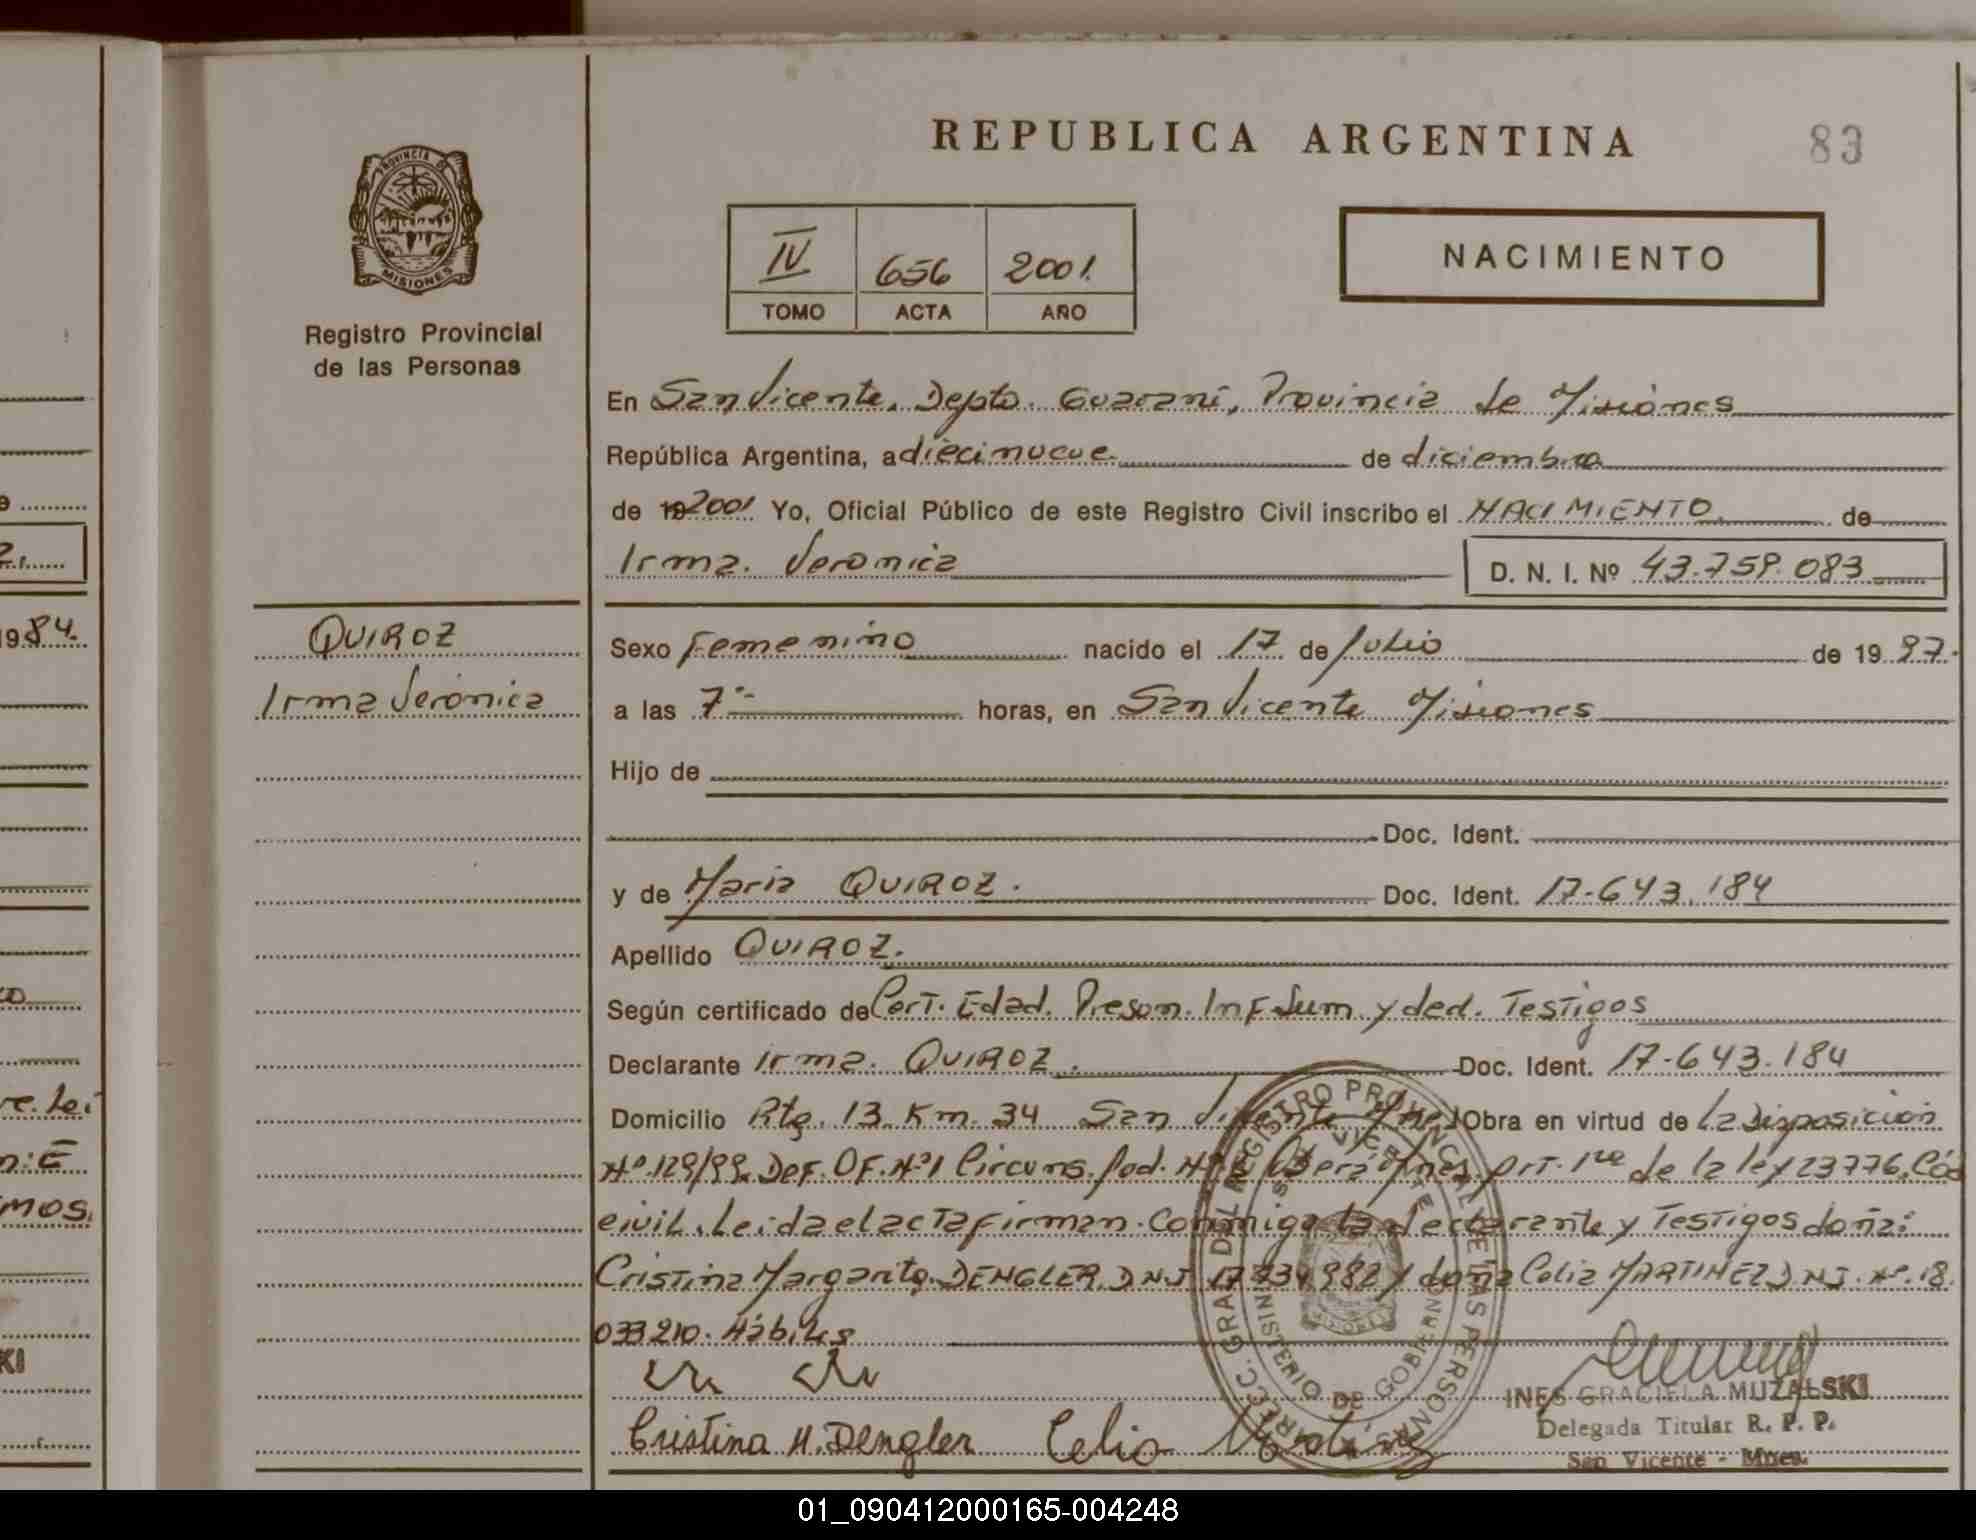 REPUBLICA ARGENTINA
83
PROVINCIA DE
MISIONES
Registro Provincial
de las Personas
IV 656 2001.
TOMO ACTA AÑO
NACIMIENTO
En San Vicente, Depto. Guaraní, Provincia de Misiones
República Argentina, a diecinueve de diciembre
de 19 2001 Yo, Oficial Público de este Registro Civil inscribo el NACIMIENTO. de
Irma. Veronica D. N. I. Nº 43.759.083
QUIROZ
Irma Verónica
Sexo Femenino nacido el 17 de Julio de 19 97.
a las 7 horas, en San Vicente Misiones
Hijo de
Doc. Ident.
y de Maria QUIROZ. Doc. Ident. 17-643.184
Apellido QUIROZ.
Según certificado de Cert. Edad. Presun. Inf Sum y ded. Testigos
Declarante Irma. QUIROZ. Doc. Ident. 17-643.184
Domicilio Rta. 13. Km. 34 San Vicente Mnes Obra en virtud de La Disposición
Nº.129/99. Def. OF.Nº1 Circuns. Jud. Nº Oberá Mnes. Art. 1ro de la ley 23776. Cód
civil. Leida el acta firman. Conmigo la declarante y Testigos doña:
Cristina Margarita. DENGLER. D N.I 17.734.982 y doña Celia MARTINEZ D.N.I. Nº. 18.
033210. Hábiles
Cristina M. Dengler Celia Martinez
INES GRACIELA MUZALSKI
Delegada Titular R. P. P.
San Vicente - Mnes.
MINISTERIO DE GOBIERNO
1984.
KI
01_090412000165-004248